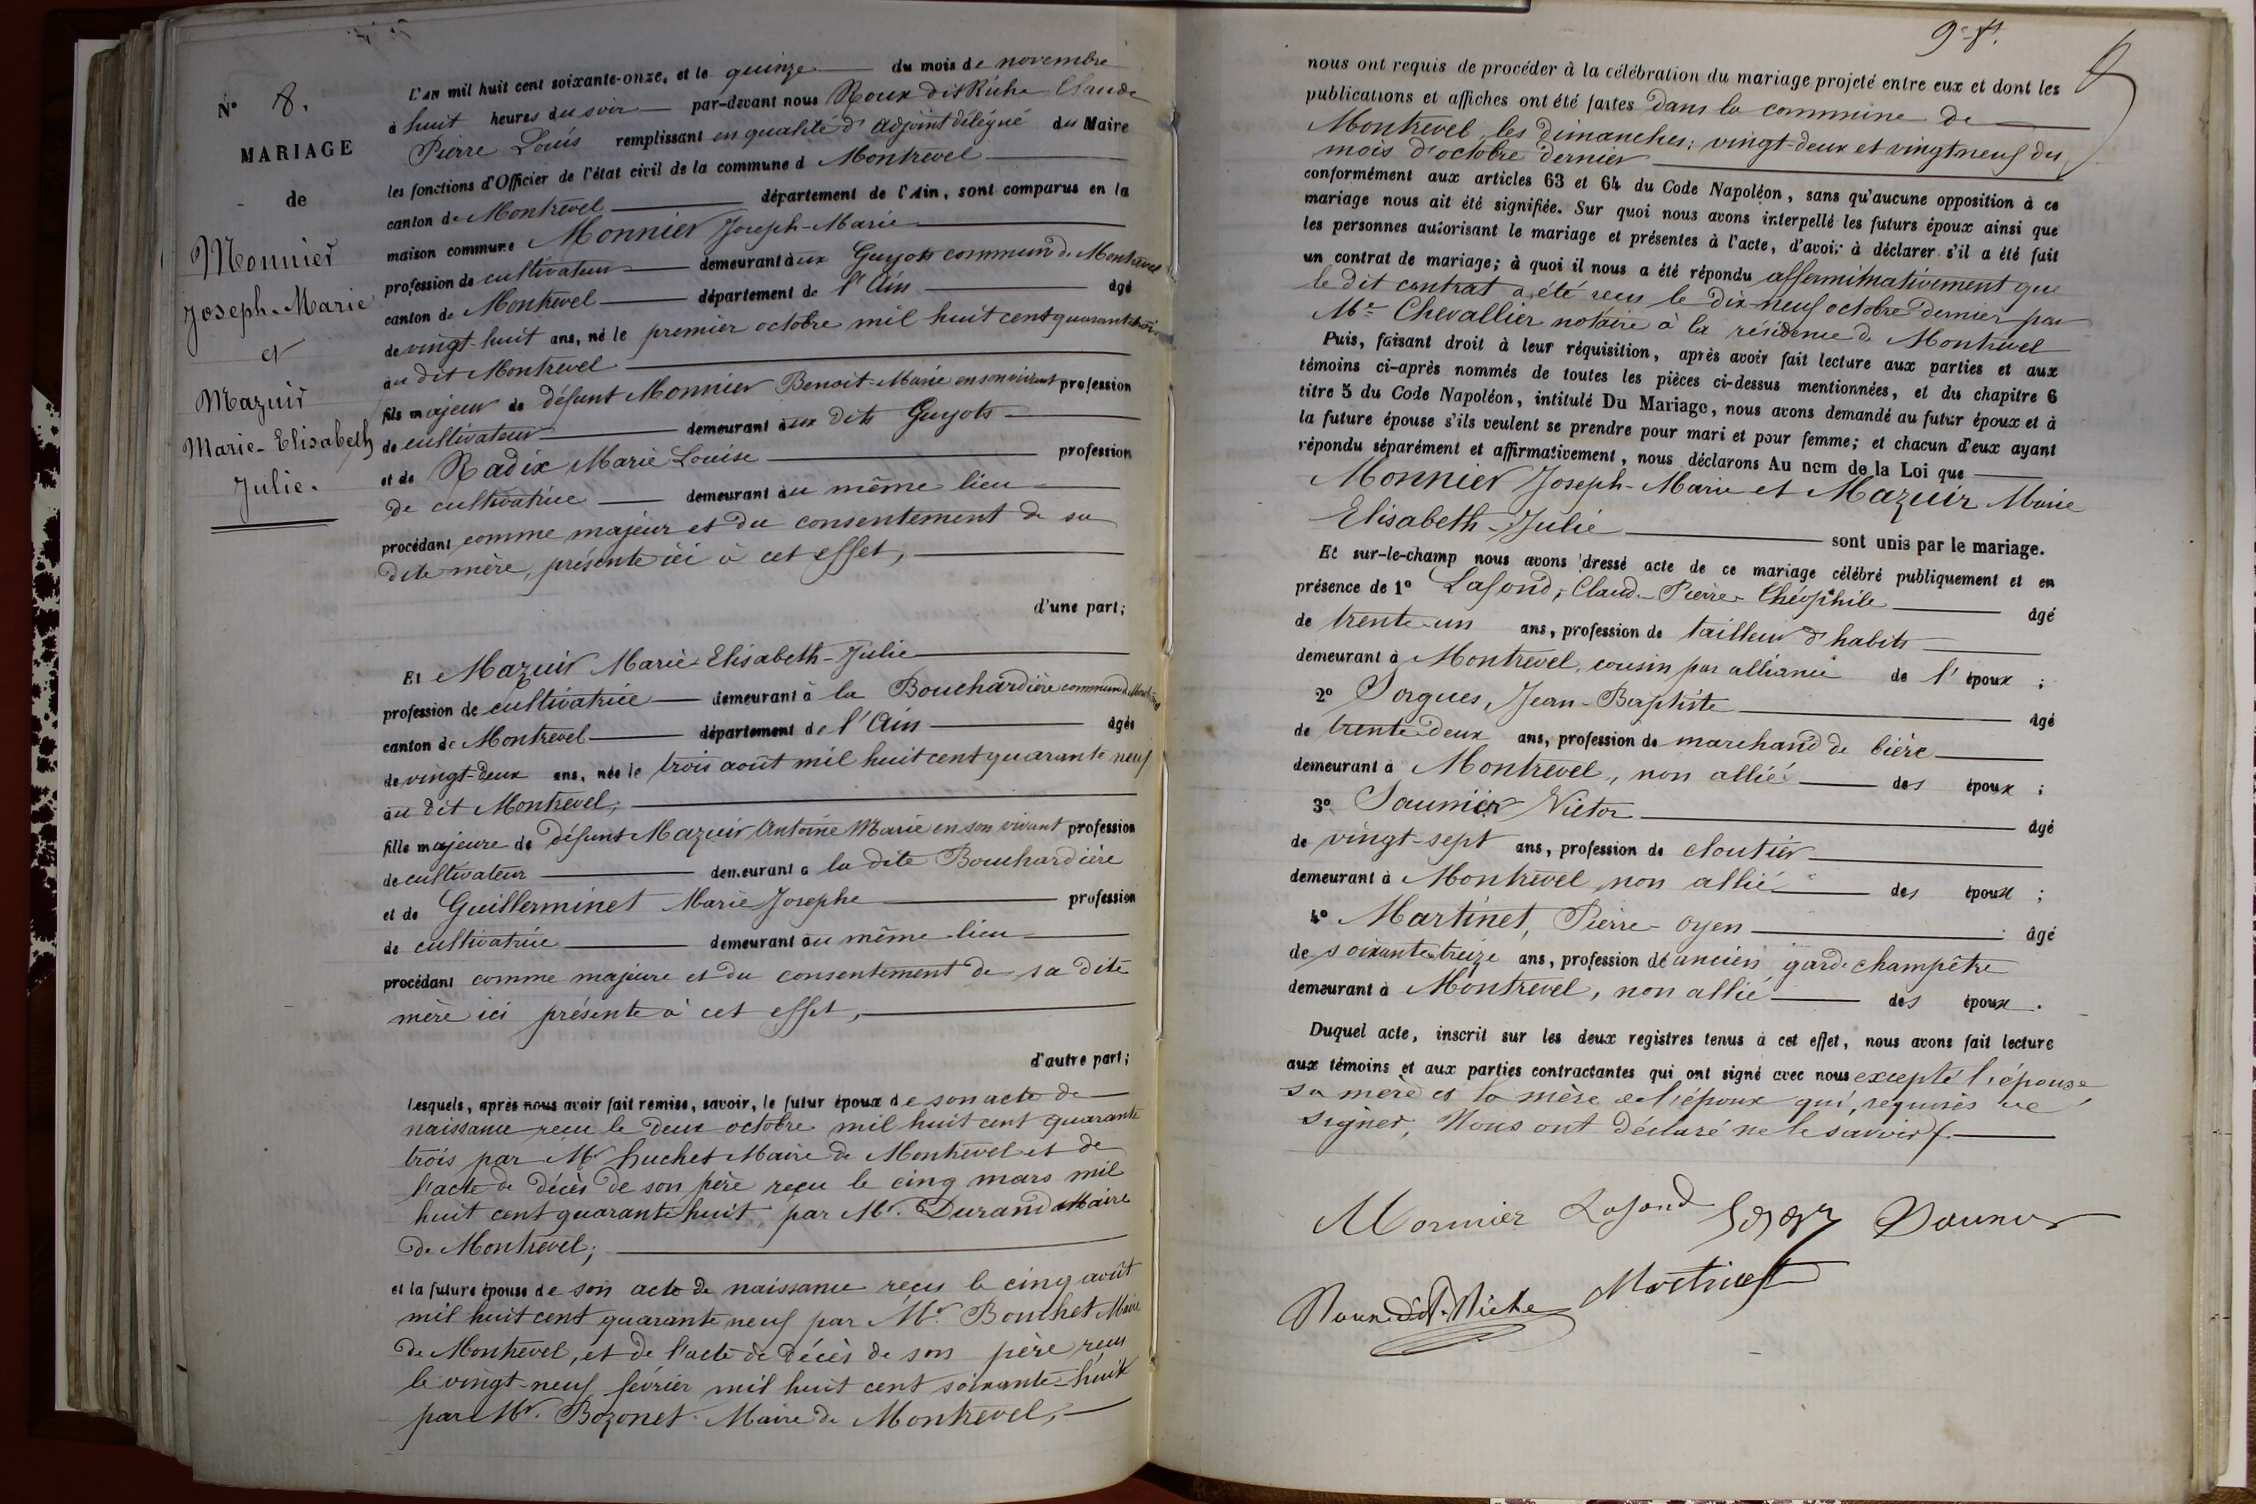 N° 8.
MARIAGE
de
Monnier
Joseph-Marie
et
Mazuir
Marie-Elisabeth
Julie.
L'an mil huit cent soixante-onze, et le quinze du mois de novembre
à huit heures du soir par-devant nous Roux dit Riche Claude
Pierre Louis remplissant en qualité d'adjoint délégué du Maire
les fonctions d'Officier de l'état civil de la commune d Montrevel
canton de Montrevel département de l'Ain, sont comparus en la
maison commune Monnier Joseph-Marie
profession de cultivateur demeurant à ux Guyots commune de Montrevel
canton de Montrevel département de l'Ain âgé
de vingt-huit ans, né le premier octobre mil huit cent quarante trois
au dit Montrevel
fils majeur de défunt Monnier Benoit-Marie en son vivant profession
de cultivateur demeurant à ux dits Guyots
et de Radix Marie Louise profession
de cultivatrice demeurant au même lieu
procédant comme majeur et du consentement de sa
dite mère, présente ici à cet effet,
d'une part;
Et Mazuir Marie-Elisabeth-Julie
profession de cultivatrice demeurant à la Bouchardière commune de Montrevel
canton de Montrevel département de l'Ain âgée
de vingt-deux ans, née le trois août mil huit cent quarante neuf
au dit Montrevel;
fille majeure de défunt Mazuir Antoine Marie en son vivant profession
de cultivateur demeurant à la dite Bouchardière
et de Guillerminet Marie Josephe profession
de cultivatrice demeurant au même lieu
procédant comme majeure et du consentement de sa dite
mère ici présente à cet effet,
d'autre part;
Lesquels, après nous avoir fait remise, savoir, le futur époux de son acte de
naissance reçu le deux octobre mil huit cent quarante
trois par Mr Huchet Maire de Montrevel et de
l'acte de décès de son père reçu le cinq mars mil
huit cent quarante huit par Mr. Durand Maire
de Montrevel;
et la future épouse de son acte de naissance reçu le cinq août
mil huit cent quarante neuf par Mr. Bouchet Maire
de Montrevel, et de l'acte de décès de son père reçu
le vingt-neuf février mil huit cent soixante-huit
par Mr. Bozonet Maire de Montrevel,
nous ont requis de procéder à la célébration du mariage projeté entre eux et dont les
publications et affiches ont été faites dans la commune de
Montrevel les dimanches; vingt-deux et vingt neuf du
mois d'octobre dernier
conformément aux articles 63 et 64 du Code Napoléon, sans qu'aucune opposition à ce
mariage nous ait été signifiée. Sur quoi nous avons interpellé les futurs époux ainsi que
les personnes autorisant le mariage et présentes à l'acte, d'avoir à déclarer s'il a été fait
un contrat de mariage; à quoi il nous a été répondu affermitnativement que
le dit contrat a été reçu le dix-neuf octobre dernier par
Me Chevallier notaire à la résidence de Montrevel
Puis, faisant droit à leur réquisition, après avoir fait lecture aux parties et aux
témoins ci-après nommés de toutes les pièces ci-dessus mentionnées, et du chapitre 6
titre 5 du Code Napoléon, intitulé Du Mariage, nous avons demandé au futur époux et à
la future épouse s'ils veulent se prendre pour mari et pour femme; et chacun d'eux ayant
répondu séparément et affirmativement, nous déclarons Au nom de la Loi que
Monnier Joseph-Marie et Mazuir Marie
Elisabeth-Julie sont unis par le mariage.
Et sur-le-champ nous avons dressé acte de ce mariage célébré publiquement et en
présence de 1° Lafond, Claude-Pierre-Théophile âgé
de trente-un ans, profession de tailleur d'habits
demeurant à Montrevel, cousin par alliance de l'époux;
2° Sorgues, Jean-Baptiste âgé
de trente-deux ans, profession de marchand de bière
demeurant à Montrevel, non allié des époux;
3° Saunier Victor âgé
de vingt-sept ans, profession de cloutier
demeurant à Montrevel non allié des époux;
4° Martinet, Pierre-Oyen âgé
de soixante-treize ans, profession de ancien garde champêtre
demeurant à Montrevel, non allié des époux.
Duquel acte, inscrit sur les deux registres tenus à cet effet, nous avons fait lecture
aux témoins et aux parties contractantes qui ont signé avec nous excepté l'épouse,
sa mère et la mère de l'époux qui, requises de
signer, Nous ont déclaré ne le savoir.
Monnier Lafond Saunier
Roux dit Riche Martinet